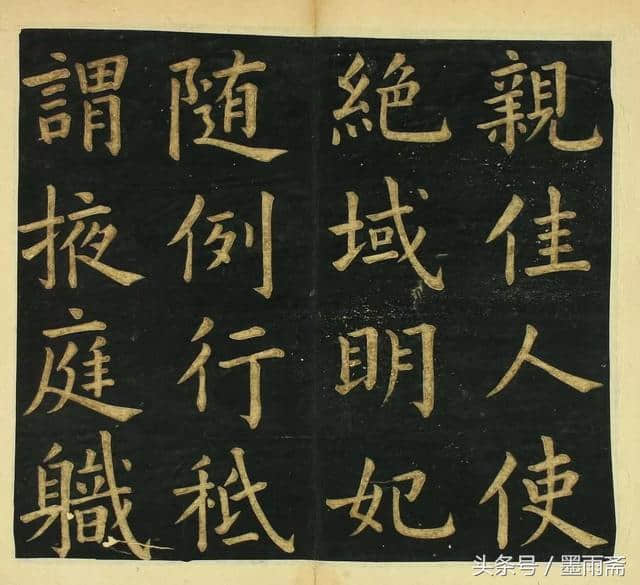 親佳人使
絶域明妃
隨例行秖
謂掖庭軄
头条号／墨雨斋